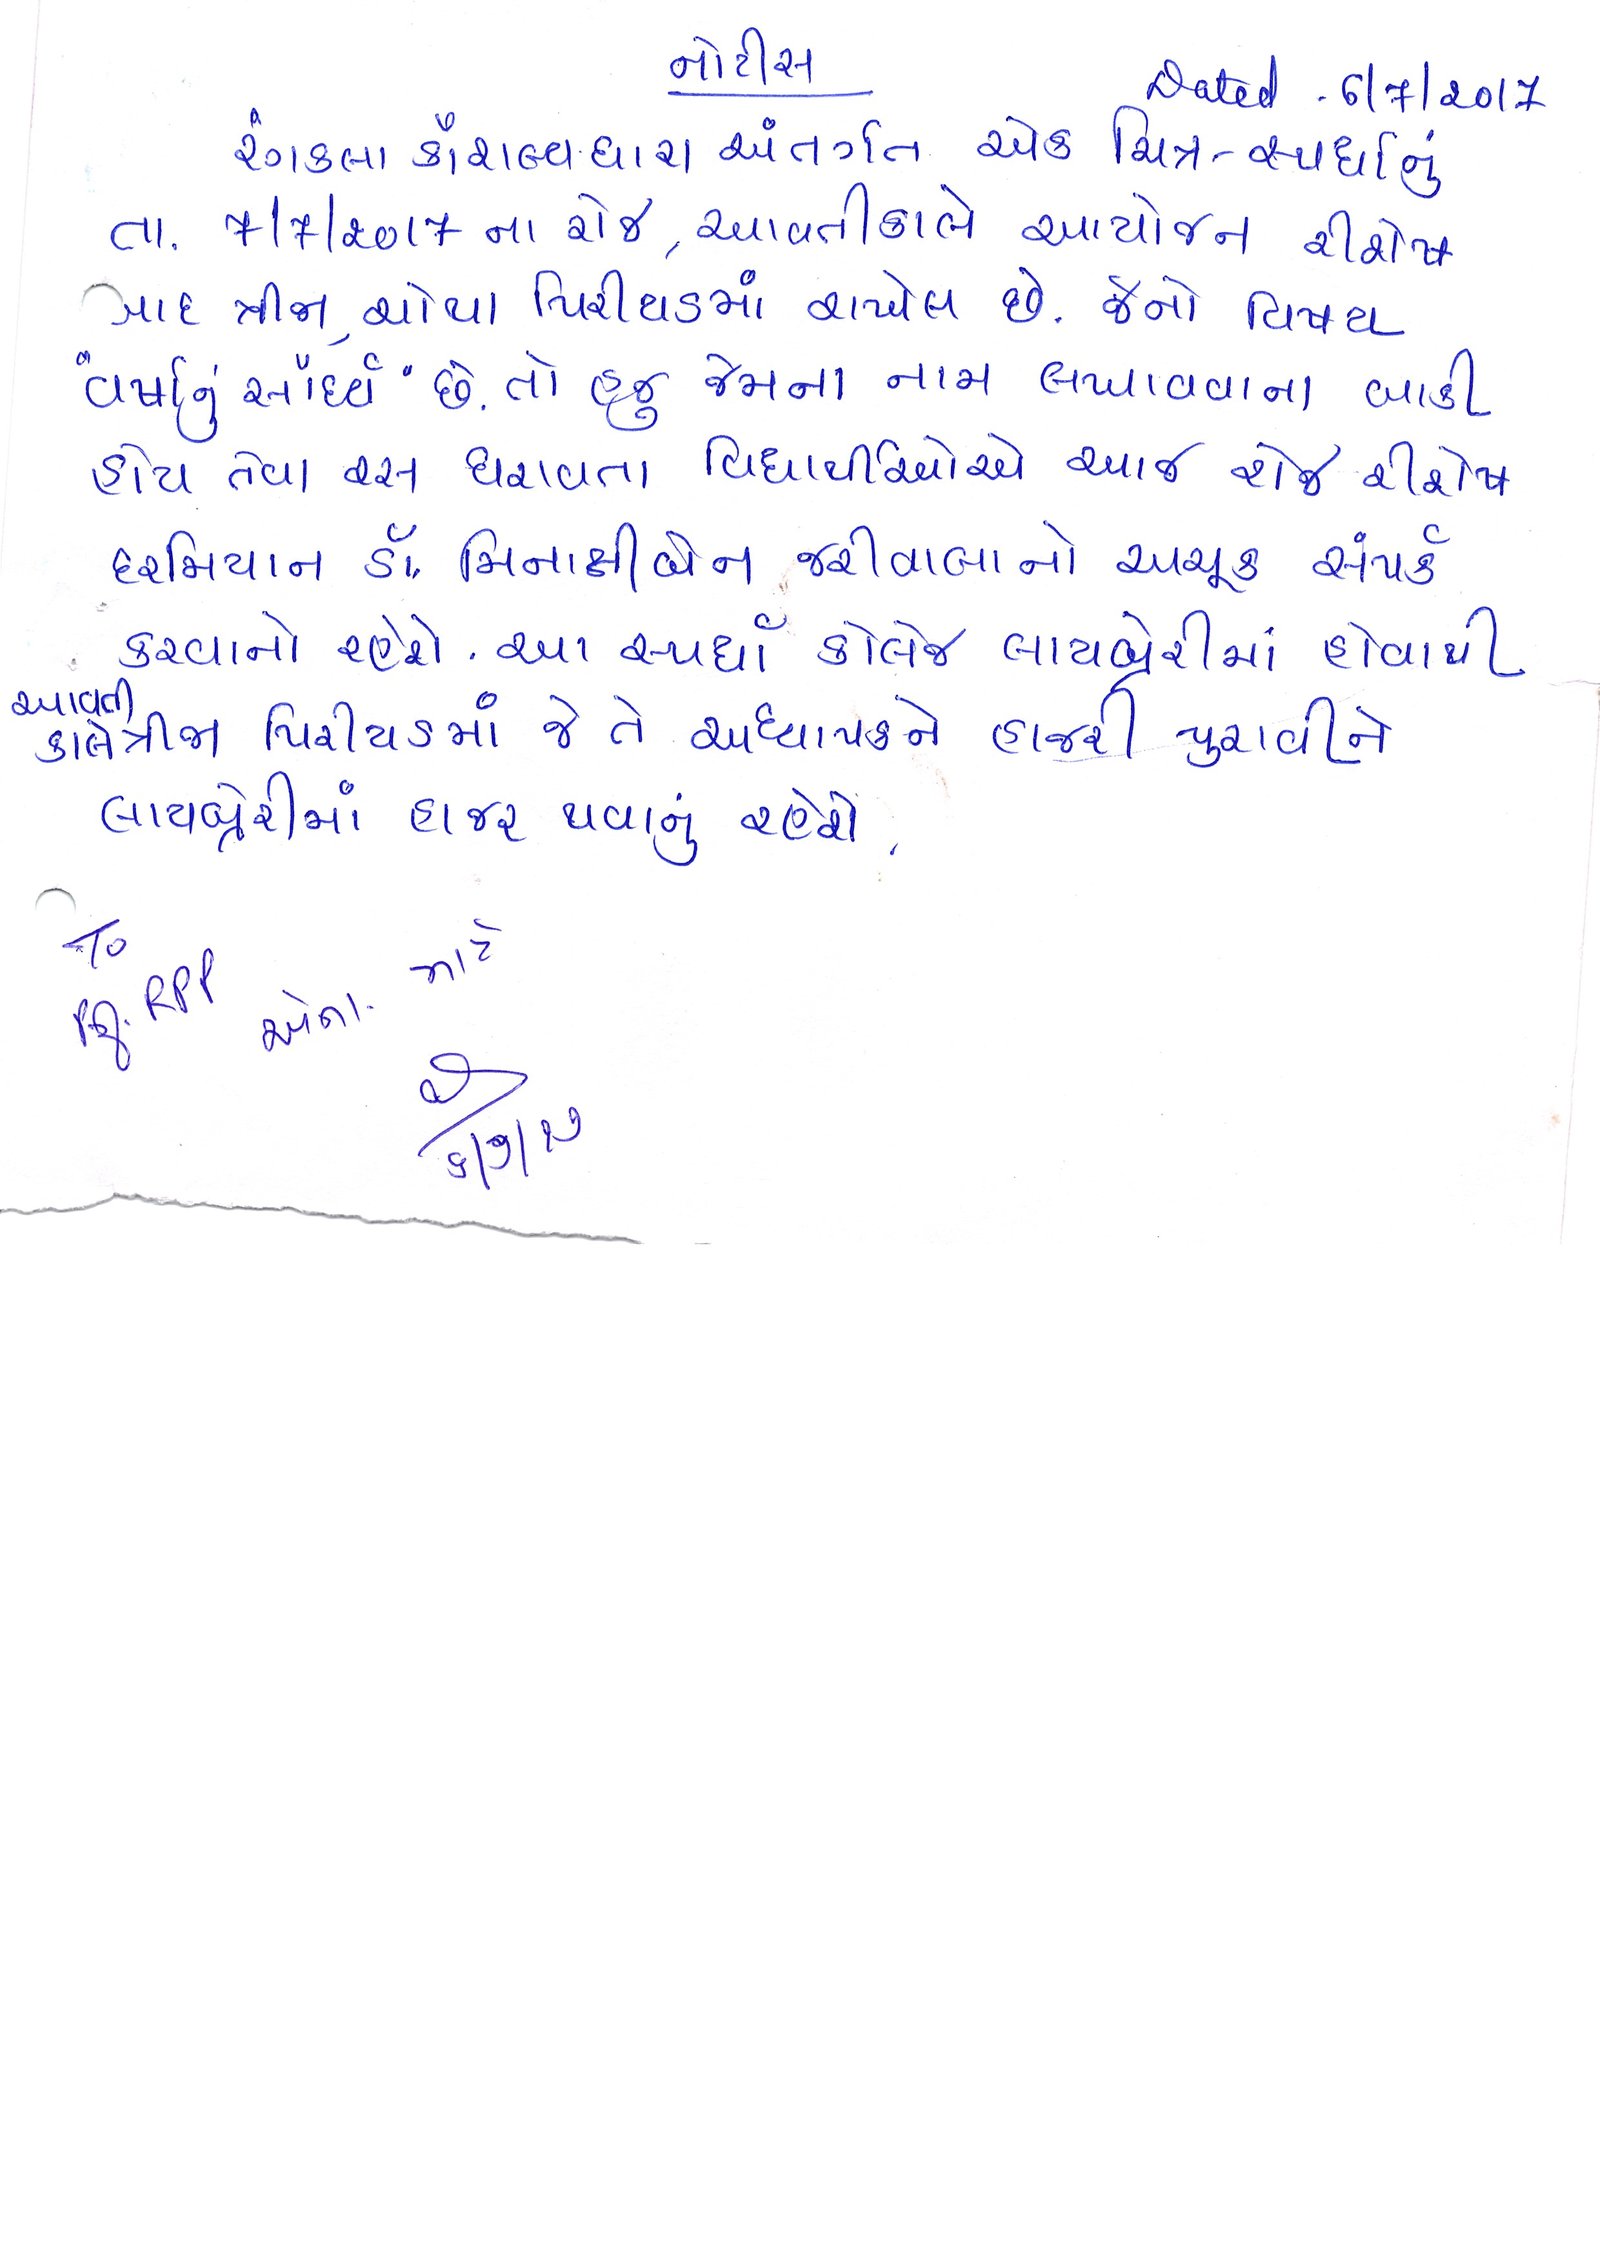 નોટીસ
Dated . 6/7/2017
રંગકલા કૌશલ્યધારા અંતર્ગત એક ચિત્ર-સ્પર્ધાનું
તા. 7/7/2017 ના રોજ, આવતીકાલે આયોજન રીશેષ
બાદ ત્રીજા, ચોથા પિરીયડમાં રાખેલ છે. જેનો વિષય
"વર્ષાનું સૌંદર્ય" છે. તો હજુ જેમના નામ લખાવવાના બાકી
હોય તેવા રસ ધરાવતા વિદ્યાર્થીઓએ આજ રોજ રીશેષ
દરમિયાન ડૉ. મિનાક્ષીબેન જરીવાલાનો અચૂક સંપર્ક
કરવાનો રહેશે. આ સ્પર્ધા કોલેજ લાયબ્રેરીમાં હોવાથી
આવતી
કાલે ત્રીજા પિરીયડમાં જે તે અધ્યાપકને હાજરી પુરાવીને
લાયબ્રેરીમાં હાજર થવાનું રહેશે.
To
RPP
માટે
૬/૭/૧૭